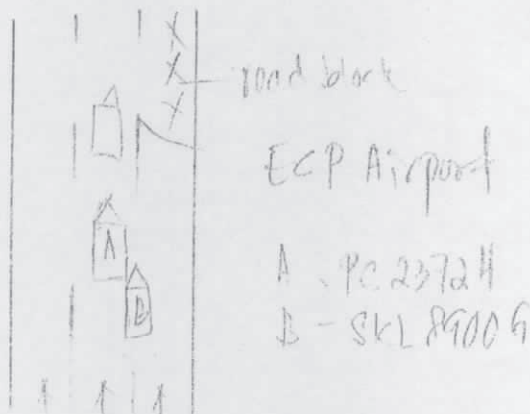 road block
ECP Airport
A
A . PC 2372H
B
B - SKL 8900G